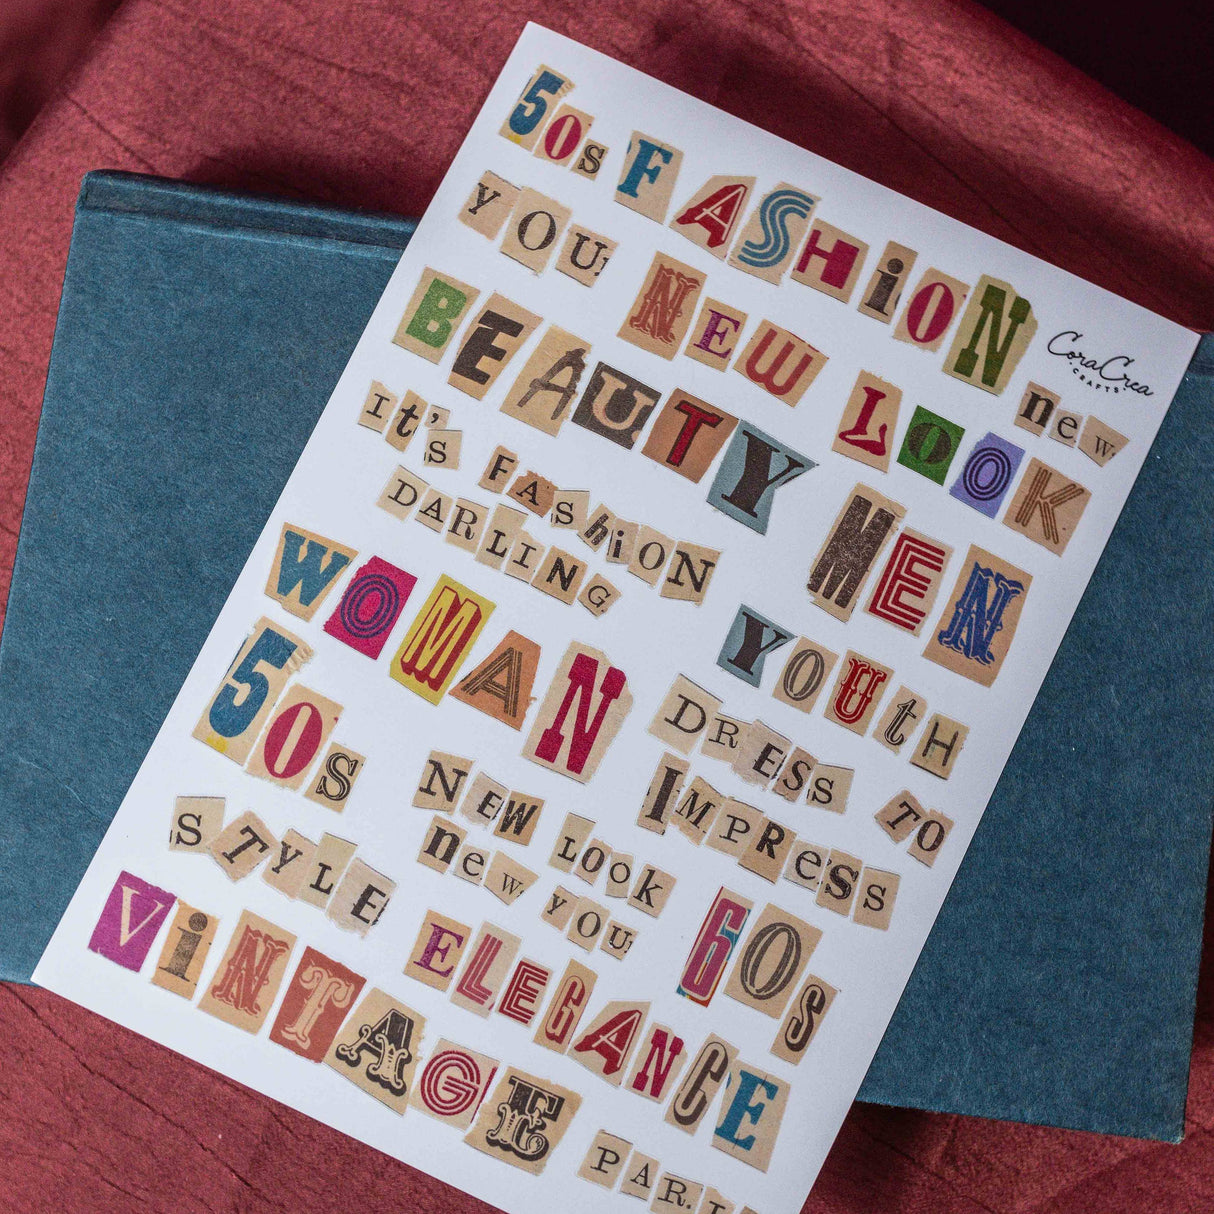 50s FASHiON
CoraCrea
CRAFTS
YOU NEW LOOK new
BEAUTY MEN
It's FASHiON
DARLING
WOMAN YOUtH
50s DRESS TO
IMPReSS
NEW LOOK
new YOU
STYLE 60s
ViNTAGE ELEGANCE